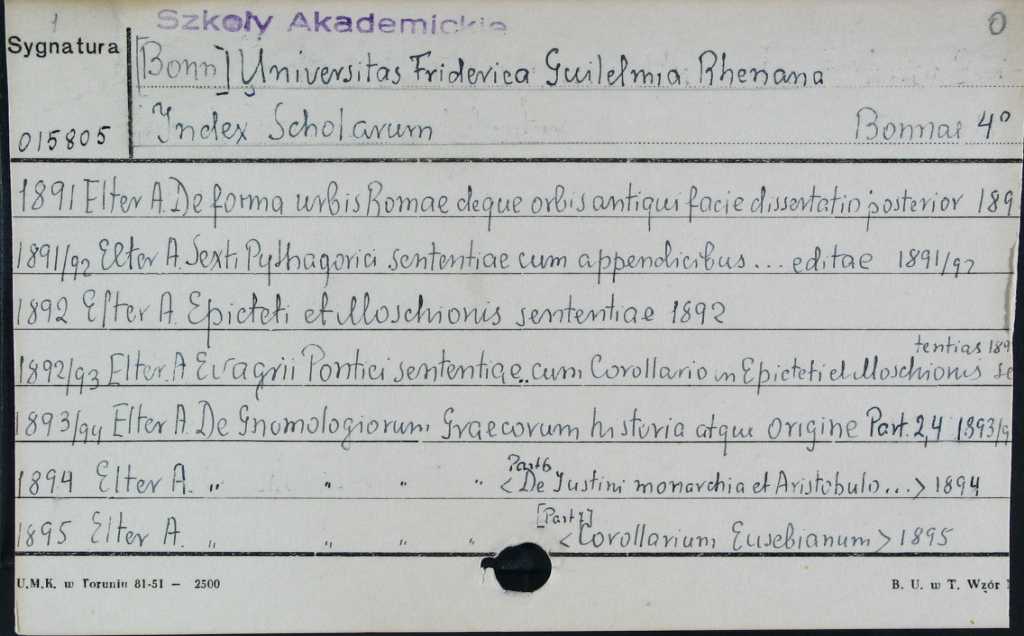 1 Szkoły Akademickie 0
Sygnatura [Bonn] Universitas Friderica Guilelmia Rhenana
015805 Index Scholarum Bonnae 4º
1891 Elter A. De forma urbis Romae deque orbis antiqui facie dissertatio posterior 189
1891/92 Elter A. Sexti Pythagorici sententiae cum appendicibus ... editae 1891/92
1892 Elter A. Epicteti et Moschionis sententiae 1892
tentias 189
1892/93 Elter A Evagrii Pontici sententiae.. cum Corollario in Epicteti et Moschionis se
1893/94 Elter A. De Gnomologiorum Graecorum historia atque origine Part. 2,4 1893/9
Part 6
1894 Elter A. " " " " <De Justini monarchia et Aristobulo...> 1894
[Part 7]
1895 Elter A. " " " " <Corollarium Eusebianum> 1895
U.M.K. w Toruniu 81-51 — 2500 B. U. w T. Wzór